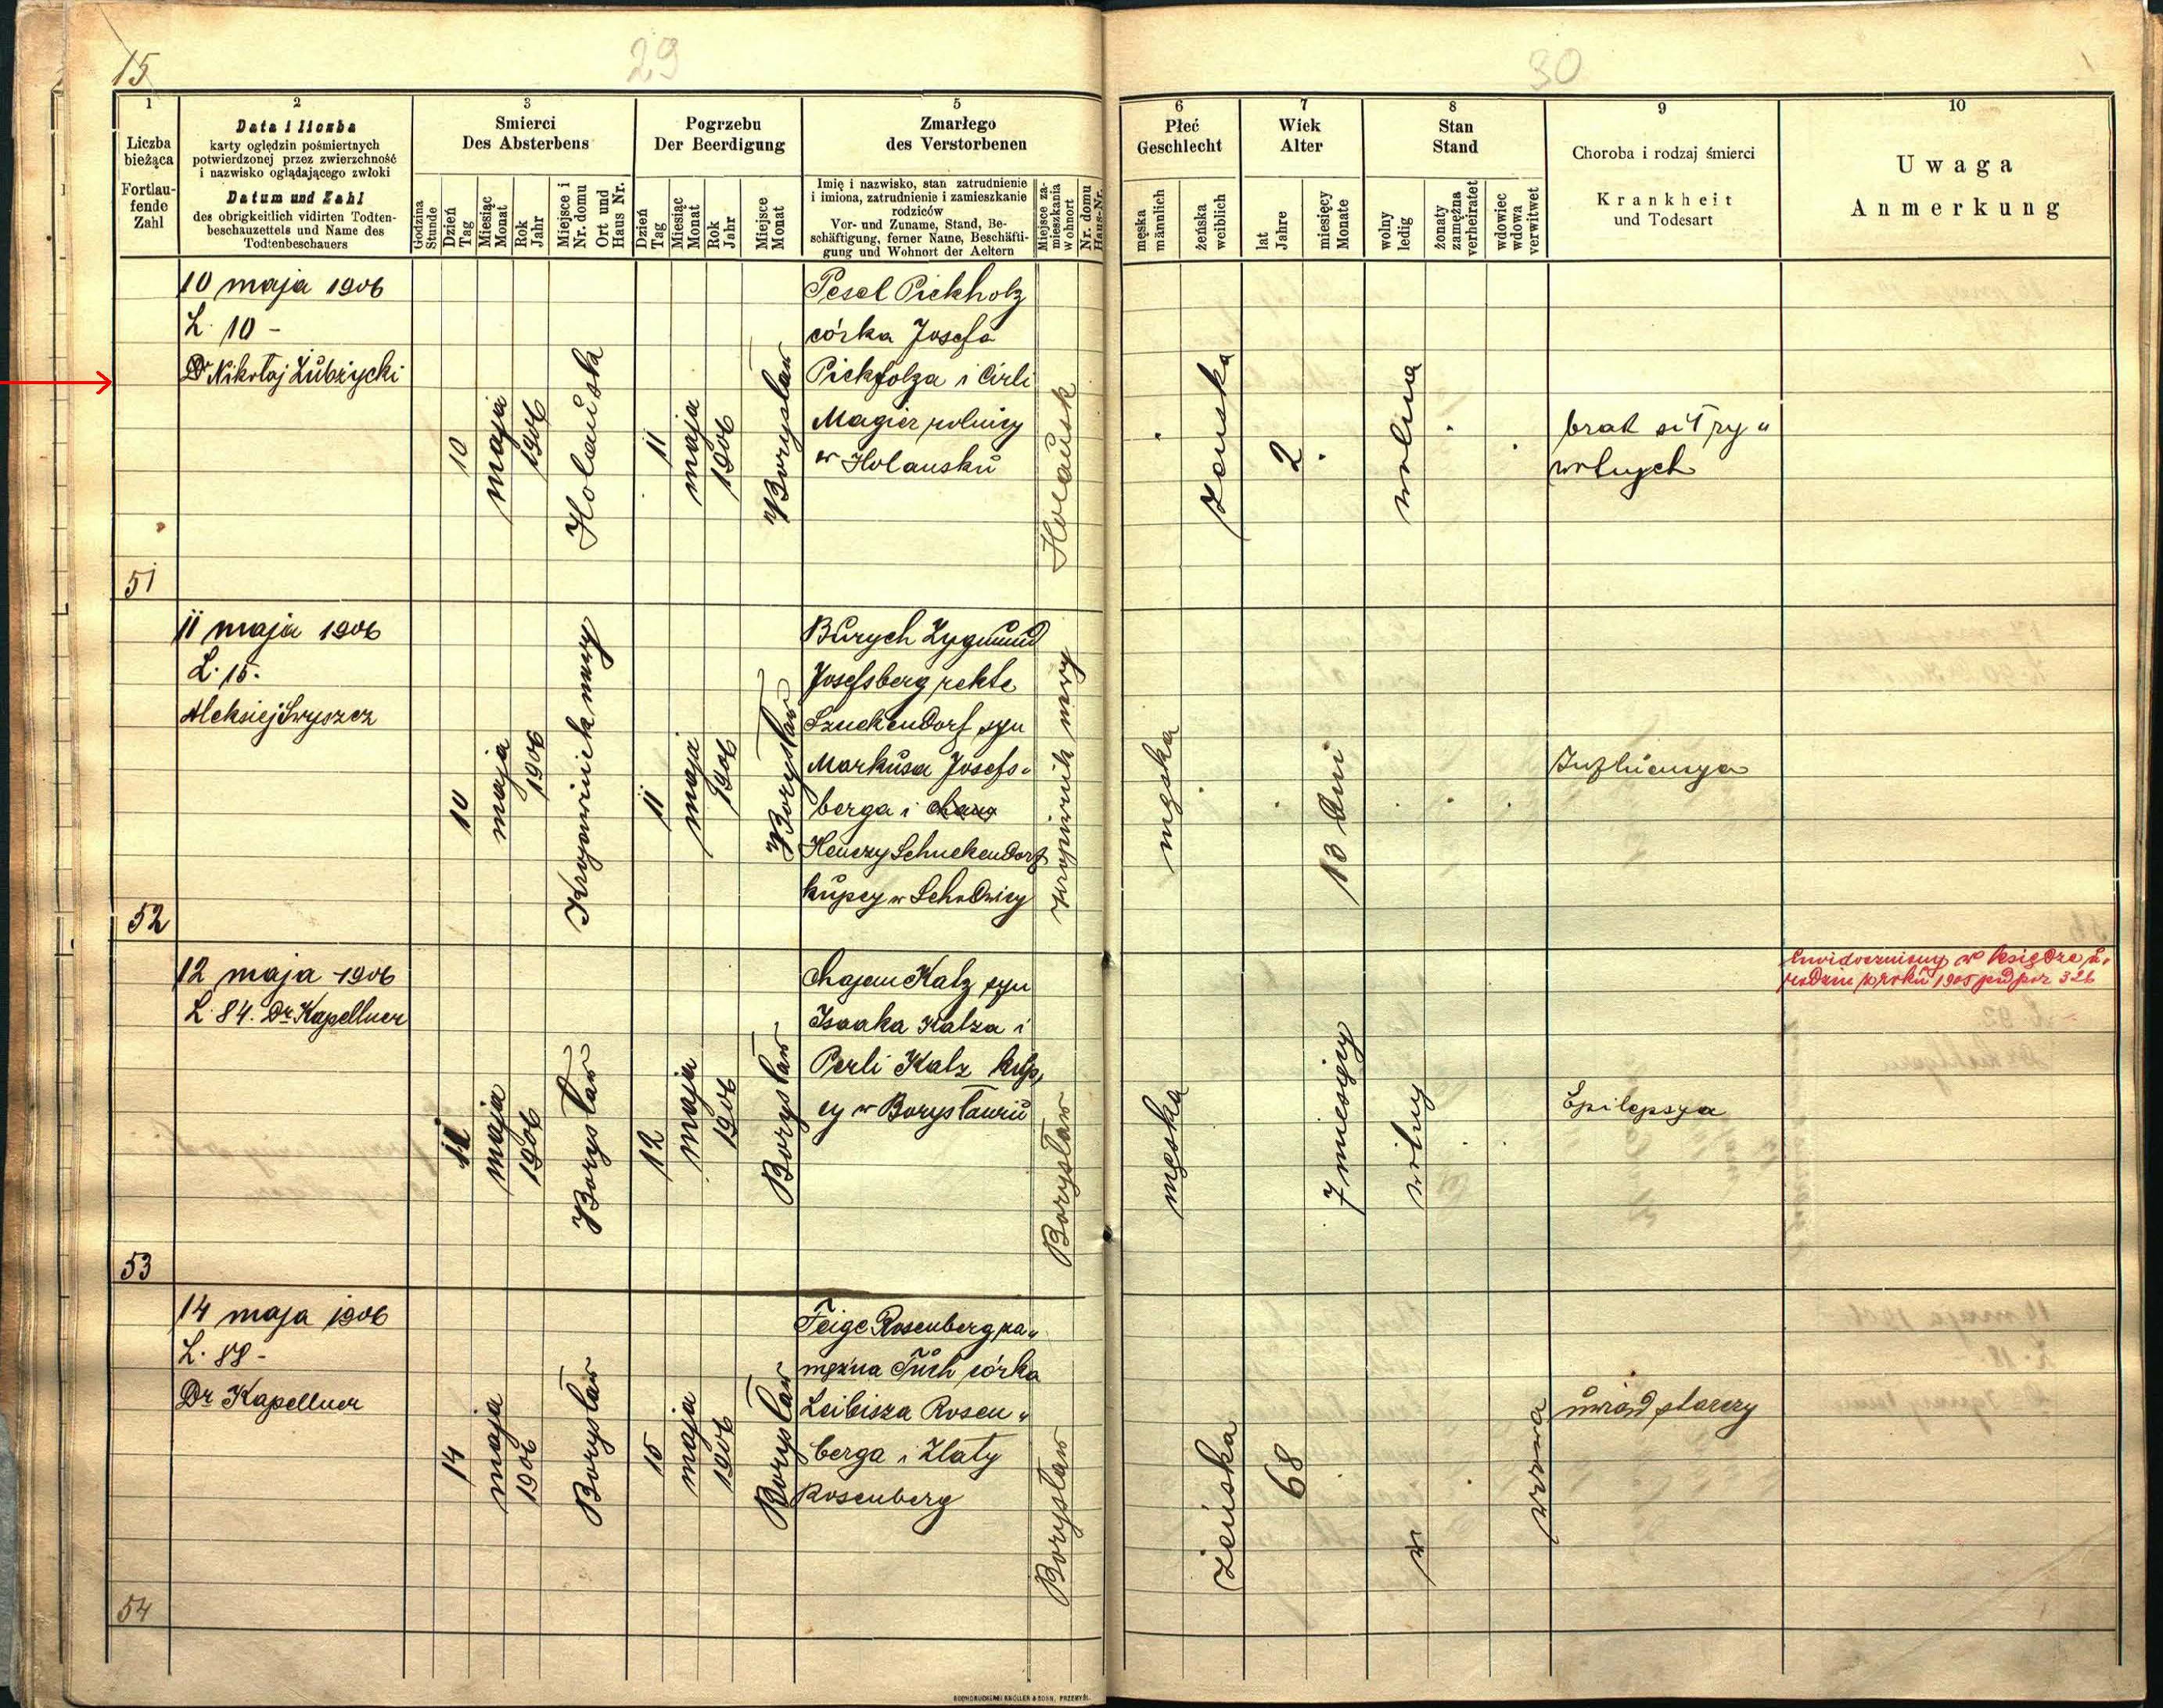 15
29
30
1
Liczba
bieżąca
Fortlau-
fende
Zahl
2
Data i liczba
karty oględzin pośmiertnych
potwierdzonej przez zwierzchność
i nazwisko oglądającego zwłoki
Datum und Zahl
des obrigkeitlich vidirten Todten-
beschauzettels und Name des
Todtenbeschauers
3
Smierci
Des Absterbens
Godzina
Stunde
Dzień
Tag
Miesiąc
Monat
Rok
Jahr
Miejsce i
Nr. domu
Ort und
Haus Nr.
Pogrzebu
Der Beerdigung
Dzień
Tag
Miesiąc
Monat
Rok
Jahr
Miejsce
Monat
5
Zmarłego
des Verstorbenen
Imię i nazwisko, stan zatrudnienie
i imiona, zatrudnienie i zamieszkanie
rodziców
Vor- und Zuname, Stand, Be-
schäftigung, ferner Name, Beschäfti-
gung und Wohnort der Aeltern
Miejsce za-
mieszkania
Wohnort
Nr. domu
Haus-Nr.
6
Płeć
Geschlecht
męska
männlich
żeńska
weiblich
7
Wiek
Alter
lat
Jahre
miesięcy
Monate
8
Stan
Stand
wolny
ledig
żonaty
zamężna
verheiratet
wdowiec
wdowa
verwitwet
9
Choroba i rodzaj śmierci
Krankheit
und Todesart
10
Uwaga
Anmerkung
51
10 maja 1906
L. 10 -
Dr Nikołaj Łubżycki
10
maja
1906
11
maja
1906
Borysław
Pesel Pickholz
córka Josefa
i Cirli
Magier
w Holausku
2
wolna
brak sił ży"
wotnych
52
11 maja 1906
L. 15.
10
maja
1906
11
maja
1906
Borysław
Zygmund
Josefsberg rekte
syn
Markusa Josefs-
berga i
kupcy w Schodnicy
męska
13 dni
53
12 maja 1906
L. 84. Dr Kapellner
11
maja
1906
Borysław
12
maja
1906
Borysław
Chajem Katz syn
Isaaka Katza i
Perli Katz kup,
cy w Borysławiu
Borysław
męska
7 miesięcy
wolny
Epilepsya
w księdze
1905 326
54
14 maja 1906
L. 88 -
Dr Kapellner
14
maja
1906
Borysław
15
maja
1906
Borysław
Feige Rosenberg za"
mężna Tuch córka
Leibisza Rosen"
berga i Zlaty
Rosenberg
Borysław
żeńska
68
w
uwiąd starczy
BUCHDRUCKEREI KNOLLER & SOHN, PRZEMYŚL